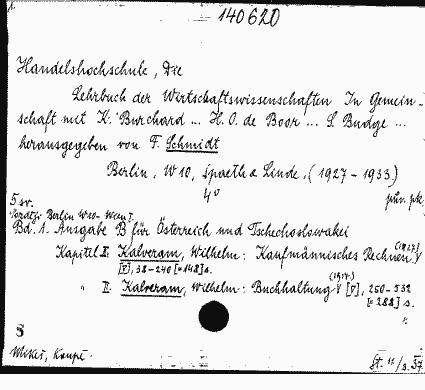 1.
140620
Handelshochschule, Die
Lehrbuch der Wirtschaftswissenschaften In Gemein-
schaft mit K. Burchard ... H. O. de Boor ... S. Budge ...
herausgegeben von F. Schmidt
Berlin, W10, Spaeth & Linde, (1927-1933)
4°
5 sv.
Berlin W10- Wien I.
Bd. 1. Ausgabe B für Österreich und Tschechoslowakei
Kapitel I. Kalveram, Wilhelm: Kaufmännisches Rechnen (1927) V
[V], 38-240 [=148] s.
" II. Kalveram, Wilhelm: Buchhaltung V [V], 250-532
[=288] s.
8